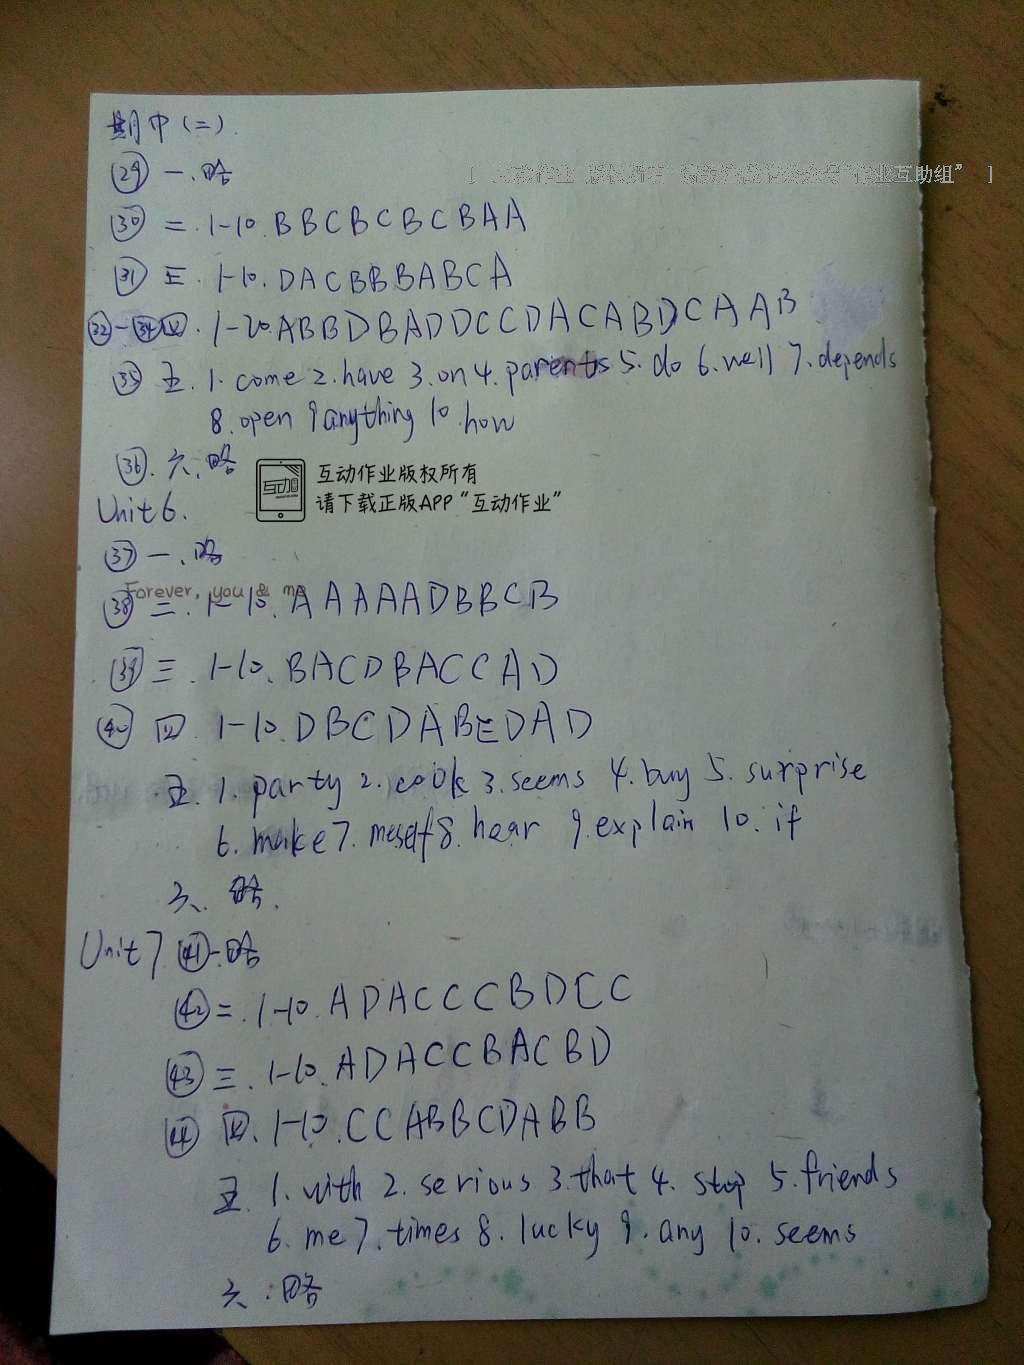 期中(二)
㉙一.略
作业互助组” ]
㉚二.1-10.BBCBCBCBAA
㉛三 1-10.DACBBBABCA
㉜-㉞四.1-20.ABBDBADDCCDACABDCAAB
㉟五.1.come 2.have 3.on 4.parents 5.do 6.well 7.depends
8.open 9anything 10.how
㊱.六.略
互动作业版权所有
请下载正版APP“互动作业”
Unit 6.
㊲一.略
Forever, you & me
㊳二.1-10.AAAAADBBCB
㊴三.1-10.BACDBACCAD
㊵四 1-10.DBCDABEDAD
五.1.party 2.cook 3.seems 4.buy 5.surprise
6.make 7.meself 8.hear 9.explain 10.if
六、略.
Unit 7 ㊶一.略
㊷二.1-10.ADACCCBDCC
㊸三.1-10.ADACCBACBD
㊹四.1-10.CCABBCDABB
五 1.with 2.serious 3.that 4.stop 5.friends
6.me 7.times 8.lucky 9.any 10.seems
六.略